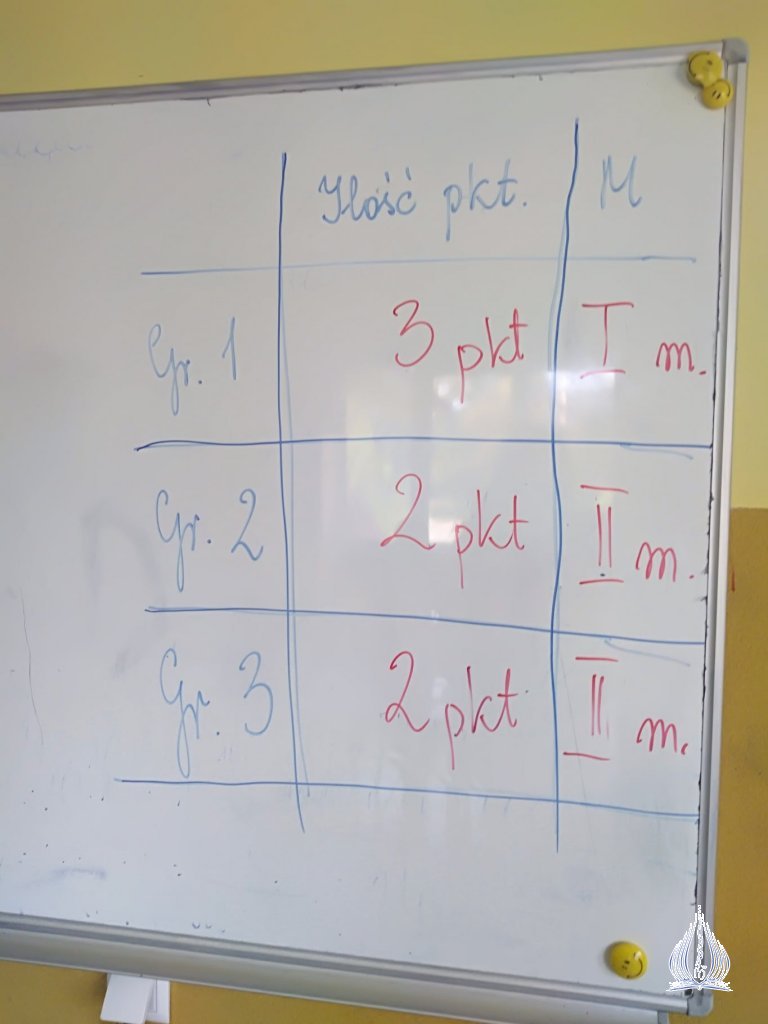 Ilość pkt. M
Gr. 1 3 pkt I m.
Gr. 2 2 pkt II m.
Gr. 3 2 pkt II m.